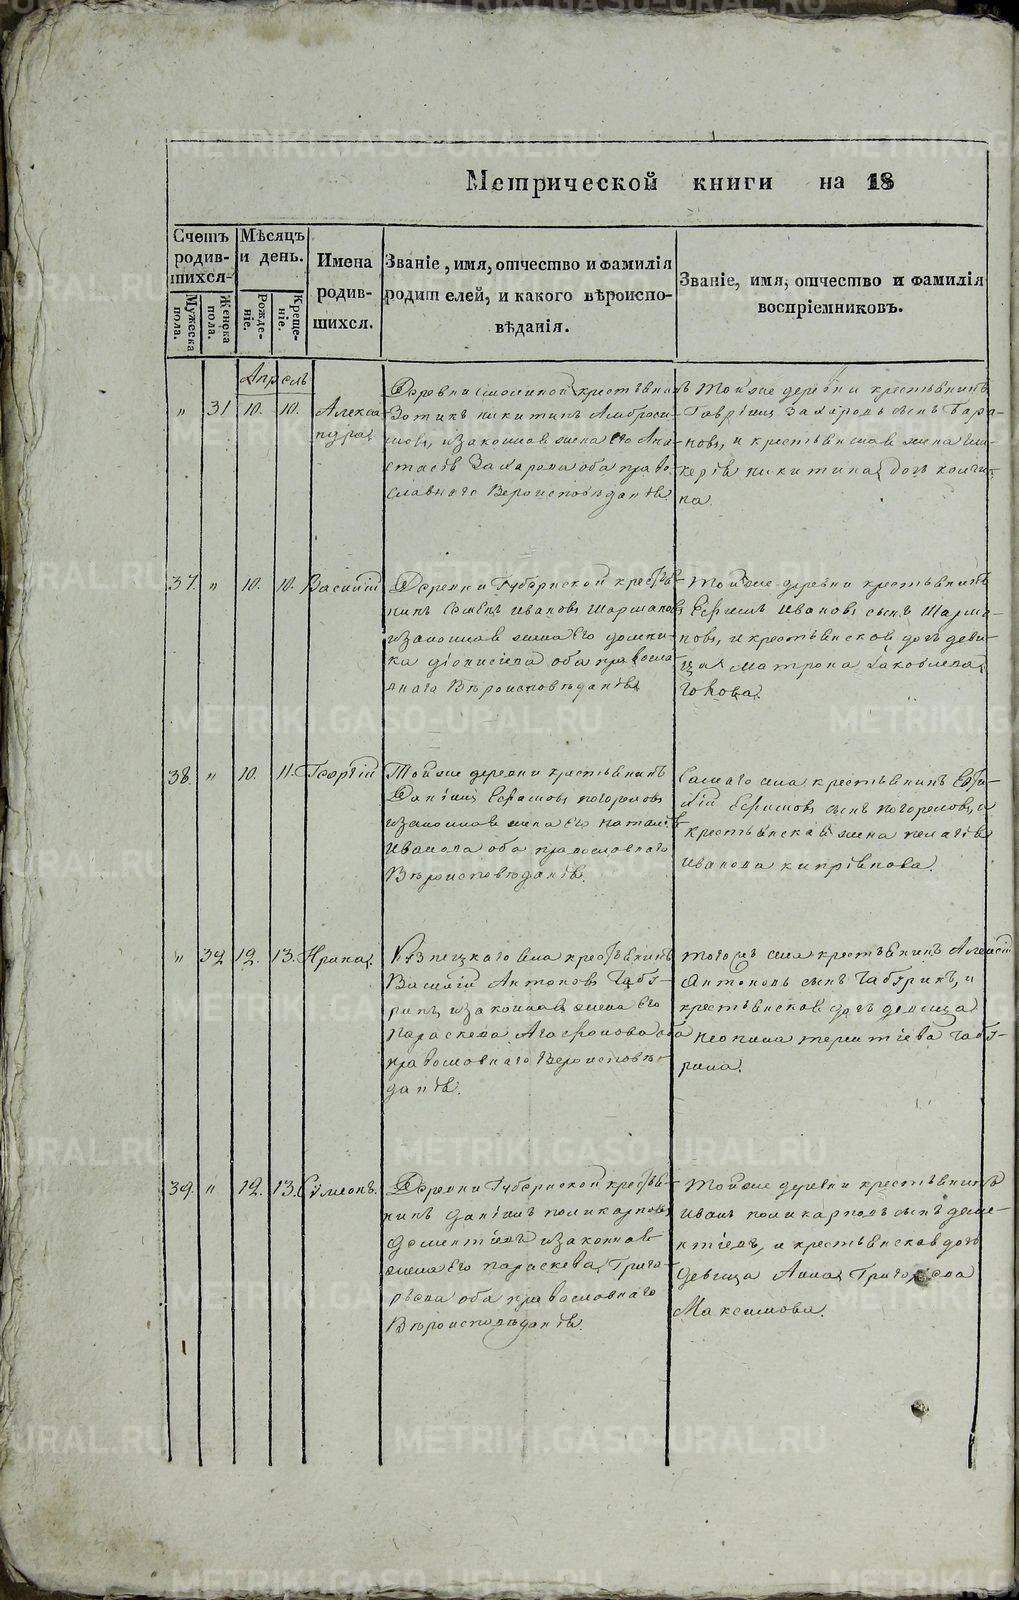 Метрической книги на 18
Счетъ родив-шихся.
Мужеска пола.
Женска пола.
Мѣсяцъ и день.
Рожде-ніе.
Креще-ніе.
Имена родив-шихся.
Званіе, имя, отчество и фамилія родителей, и какого вѣроиспо-вѣданія.
Званіе, имя, отчество и фамилія воспріемниковъ.
Апрель
" 31 10. 10. Алекса
ндра
крестьяни
Зотикъ никитинъ Амброси
мовъ, изаконная жена его Ана
стасія Захарова оба право
славнаго Вероисповѣданія
Той же деревни крестьянинъ
Гавріилъ Захаровъ сынъ Бара-
новъ, и крестьянская жена
никитина
на.
37. " 10. 10. Василій
Деревни Губернской крестья-
нинъ Семенъ Ивановъ Шармановъ
изаконная жена Его домни-
ка діонисіева оба правосла
внаго Вѣроисповѣданія
Той же деревни крестьянинъ
Ефимъ Ивановъ сынъ Шарма-
новъ, и крестьянской дочь деви-
ца Матрона Иаковлева
38. " 10. 11. Георгій
Той же деревни крестьянинъ
Даніилъ Ефимовъ погореловъ
изаконная жена Его наталія
Иванова оба православнаго
Вѣроисповѣданія.
Самаго села крестьянинъ
Ефимовъ сынъ погореловъ, и
крестьянская жена пелагія
Иванова кипріянова.
" 32 12. 13. Ирина.
села крестьянинъ
Василій Антоновъ Чабу-
ринъ, изаконная жена Его
параскева Агафонова оба
православнаго Вероисповѣ-
данія.
тогожъ села крестьянинъ Алексій
Антоновъ сынъ Чабуринъ, и
крестьянской дочь девица
терентіева Чабу-
рина.
39. " 12. 13. Сумеонъ.
Деревни Губернской крестья-
нинъ Даніилъ поликарповъ
дементіевъ изаконная
жена Его параскева Григо-
рьева оба православнаго
Вѣроисповѣданія.
Той же деревни крестьянинъ
Иванъ поликарповъ сынъ деме-
нтіевъ, и крестьянская дочь
девица Анна Григорьева
Максимова.
METRIKI.GASO-URAL.RU